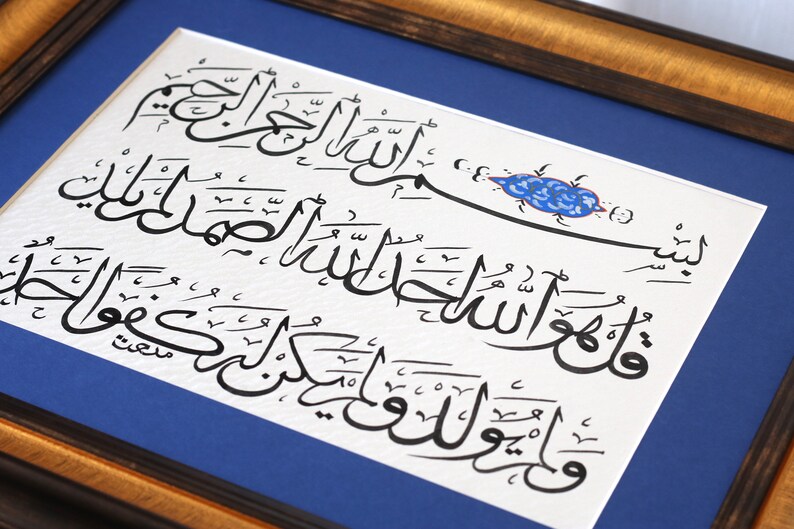 بِسْمِ اللّٰهِ الرَّحْمٰنِ الرَّحِيمِ
قُلْ هُوَ اللّٰهُ أَحَدٌ اللّٰهُ الصَّمَدُ لَمْ يَلِدْ
وَلَمْ يُولَدْ وَلَمْ يَكُنْ لَهُ كُفُوًا أَحَدٌ